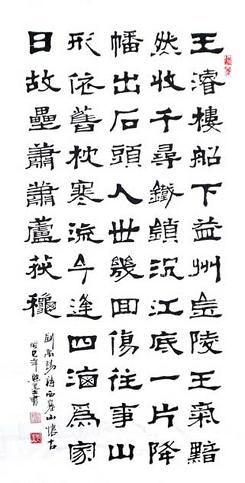 王濬樓船下益州金陵王氣黯
然收千尋鐵鎖沉江底一片降
幡出石頭人世幾回傷往事山
形依舊枕寒流今逢四海爲家
日故壘蕭蕭蘆荻穐
劉禹錫詩西塞山懷古
巳年書